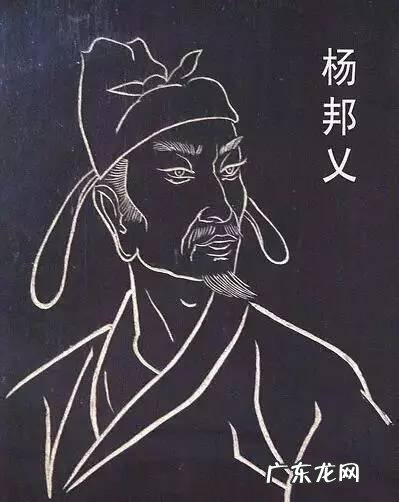 杨邦乂
广东龙网